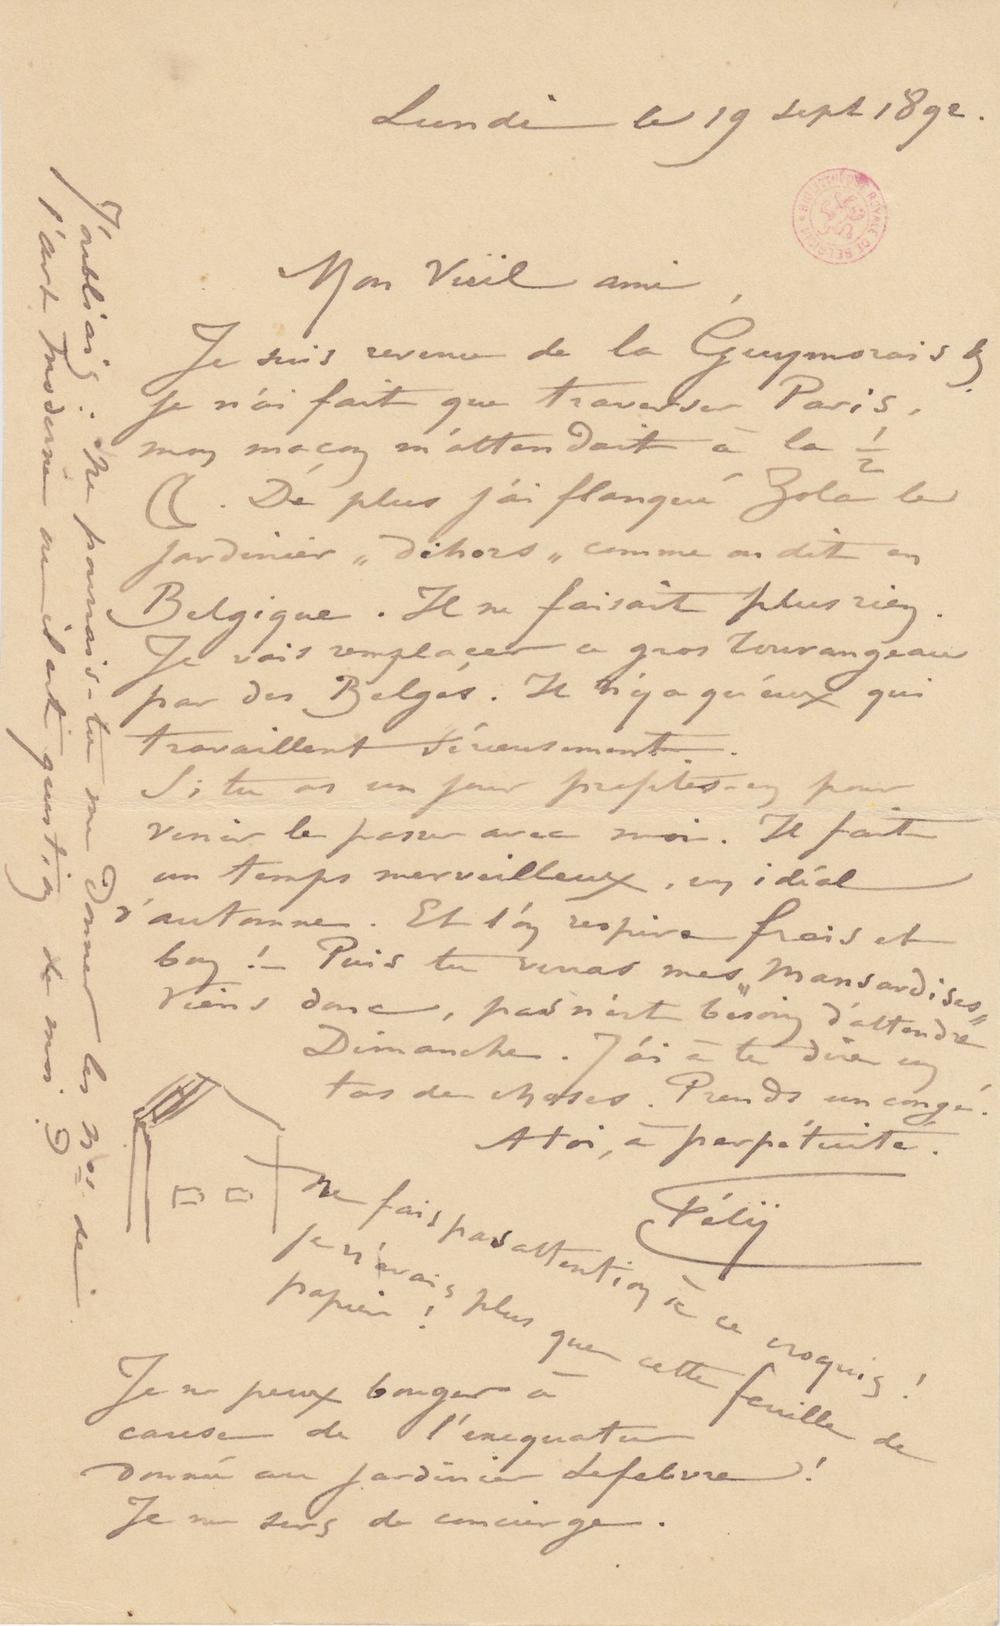 Lundi le 19 sept 1892.
BIBLIOTHÈQUE ROYALE DE BELGIQUE
Mon Vieil ami,
Je suis revenu de la Guymorais &
je n'ai fait que traverser Paris,
mon maçon m'attendait à la ½
. De plus j'ai flanqué Zola le
jardinier „dihors„ comme on dit en
Belgique. Il ne faisait plus rien.
Je vais remplacer ce gros Tourangeau
par des Belges. Il n'y a qu'eux qui
travaillent sérieusement.
Si tu as un jour profites-en pour
venir le passer avec moi. Il fait
un temps merveilleux, un idéal
d'automne. Et l'on respire frais et
bon !– Puis tu verras mes „Mansardises„
Viens donc, pas n'est besoin d'attendre
Dimanche. J'ai à te dire un
tas de choses. Prends un congé.
A toi, à perpétuité.
Fély
Ne fais pas attention à ce croquis!
je n'avais plus que cette feuille de
papier!
Je ne peux bouger à
cause de l'exequatur
donné au jardinier Lefebvre!
Je me sers de concierge.
J'oubliais: Ne pourrais-tu me donner les Nos de
l'art Moderne où il est question de moi?